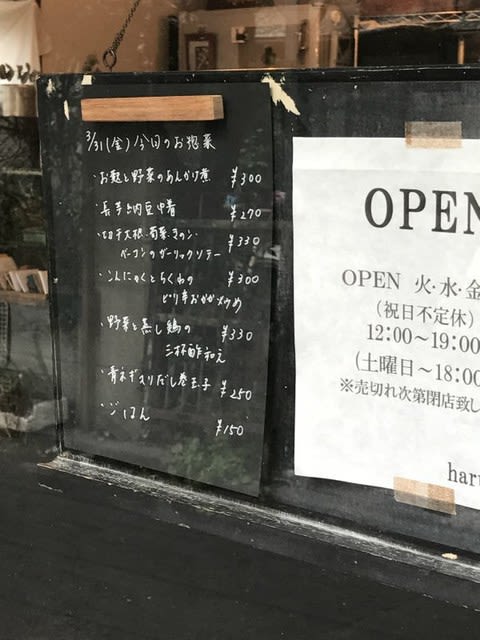 3/31(金)今日のお惣菜
・お麩と野菜のあんかけ煮 ¥300
・長芋と納豆巾着 ¥270
・切干大根・菊菜・きのこ・
ベーコンのガーリックソテー ¥330
・こんにゃくとちくわの ¥300
ピリ辛おかか炒め
・野菜と蒸し鶏の ¥330
三杯酢和え
・青ネギ入りだし巻玉子 ¥250
・ごはん ¥150
OPEN
OPEN 火・水・金
(祝日不定休)
12:00〜19:00
(土曜日〜18:00
※売切れ次第閉店致し
haru